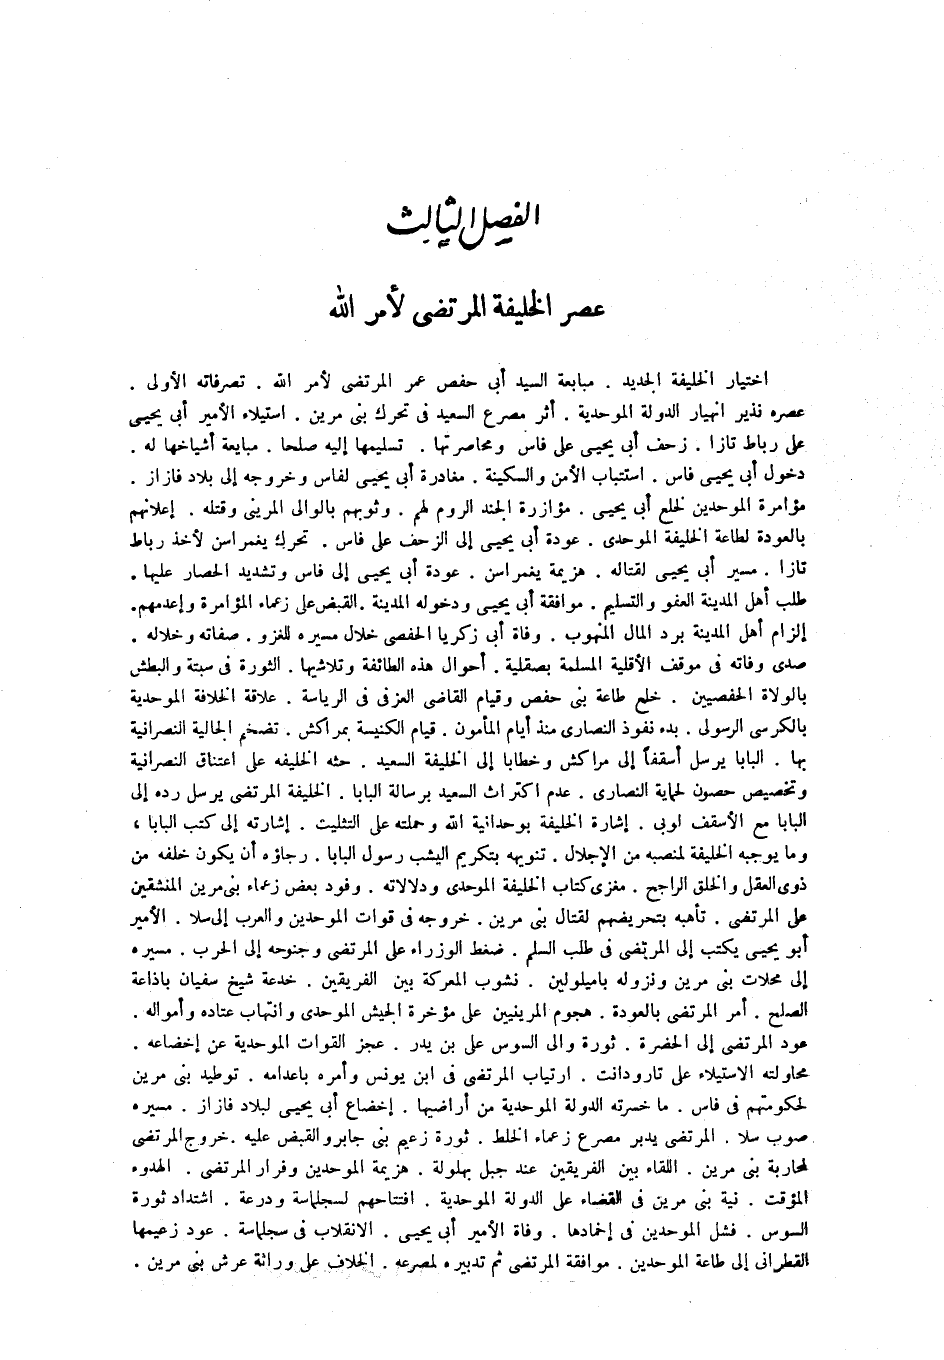 الفصل الثالث
عصر الخليفة المرتضى لأمر الله
اختيار الخليفة الجديد . مبايعة السيد أبي حفص عمر المرتضى لأمر الله . تصرفاته الأولى .
عصره نذير انهيار الدولة الموحدية . أثر مصرع السعيد فى تحرك بنى مرين . استيلاء الأمير أبي يحيى
على رباط تازا . زحف أبي يحيى على فاس ومحاصرتها . تسليمها إليه صلحا . مبايعة أشياخها له .
دخول أبي يحيى فاس . استتباب الأمن والسكينة . مغادرة أبي يحيى لفاس وخروجه إلى بلاد فازاز .
مؤامرة الموحدين لخلع أبي يحيى . مؤازرة الجند الروم لهم . وثوبهم بالوالى المرينى وقتله . إعلانهم
بالعودة لطاعة الخليفة الموحدى . عودة أبي يحيى إلى الزحف على فاس . تحرك يغمراسن لأخذ رباط
تازا . مسير أبي يحيى لقتاله . هزيمة يغمراسن . عودة أبي يحيى إلى فاس وتشديد الحصار عليها .
طلب أهل المدينة العفو والتسليم . موافقة أبي يحيى ودخوله المدينة . القبض على زعماء المؤامرة وإعدمهم .
إلزام أهل المدينة برد المال المنهوب . وفاة أبي زكريا الحفصى خلال مسيره للغزو . صفاته وخلاله .
صدى وفاته فى موقف الأقلية المسلمة بصقلية . أحوال هذه الطائفة وتلاشيها . الثورة فى سبتة والبطش
بالولاة الحفصيين . خلع طاعة بنى حفص وقيام القاضى العزفى فى الرياسة . علاقة الخلافة الموحدية
بالكرسى الرسولى . بدء نفوذ النصارى منذ أيام المأمون . قيام الكنيسة بمراكش . تضخم الجالية النصرانية
بها . البابا يرسل أسقفاً إلى مراكش وخطابا إلى الخليفة السعيد . حثه الخليفه على اعتناق النصرانية
وتخصيص حصون لحماية النصارى . عدم اكتراث السعيد برسالة البابا . الخليفة المرتضى يرسل رده إلى
البابا مع الأسقف لوبى . إشارة الخليفة بوحدانية الله وحملته على التثليت . إشارته إلى كتب البابا ،
وما يوجبه الخليفة لمنصبه من الإجلال . تنويهه بتكريم اليشب رسول البابا . رجاؤه أن يكون خلفه من
ذوى العقل والخلق الراجح . مغزى كتاب الخليفة الموحدى ودلالاته . وفود بعض زعماء بنى مرين المنشقين
على المرتضى . تأهبه بتحريضهم لقتال بنى مرين . خروجه فى قوات الموحدين والعرب إلى سلا . الأمير
أبو يحيى يكتب إلى المرتضى فى طلب السلم . ضغط الوزراء على المرتضى وجنوحه إلى الحرب . مسيره
إلى محلات بنى مرين ونزوله باميلولين . نشوب المعركة بين الفريقين . خدعة شيخ سفيان باذاعة
الصلح . أمر المرتضى بالعودة . هجوم المرينيين على مؤخرة الجيش الموحدى وانتهاب عتاده وأمواله .
عود المرتضى إلى الحضرة . ثورة والى السوس على بن يدر . عجز القوات الموحدية عن إخضاعه .
محاولته الاستيلاء على تارودانت . ارتياب المرتضى فى ابن يونس وأمره باعدامه . توطيد بنى مرين
لحكومتهم فى فاس . ما خسرته الدولة الموحدية من أراضيها . إخضاع أبي يحيى لبلاد فازاز . مسيره
صوب سلا . المرتضى يدبر مصرع زعماء الخلط . ثورة زعيم بنى جابر والقبض عليه . خروج المرتضى
لمحاربة بنى مرين . اللقاء بين الفريقين عند جبل بهلولة . هزيمة الموحدين وفرار المرتضى . الهدوء
المؤقت . نية بنى مرين فى القضاء على الدولة الموحدية . افتتاحهم لسجلماسة ودرعة . اشتداد ثورة
السوس . فشل الموحدين فى إخمادها . وفاة الأمير أبي يحيى . الانقلاب فى سجلماسة . عود زعيمها
القطرانى إلى طاعة الموحدين . موافقة المرتضى ثم تدبيره لمصرعه . الخلاف على وراثة عرش بنى مرين .